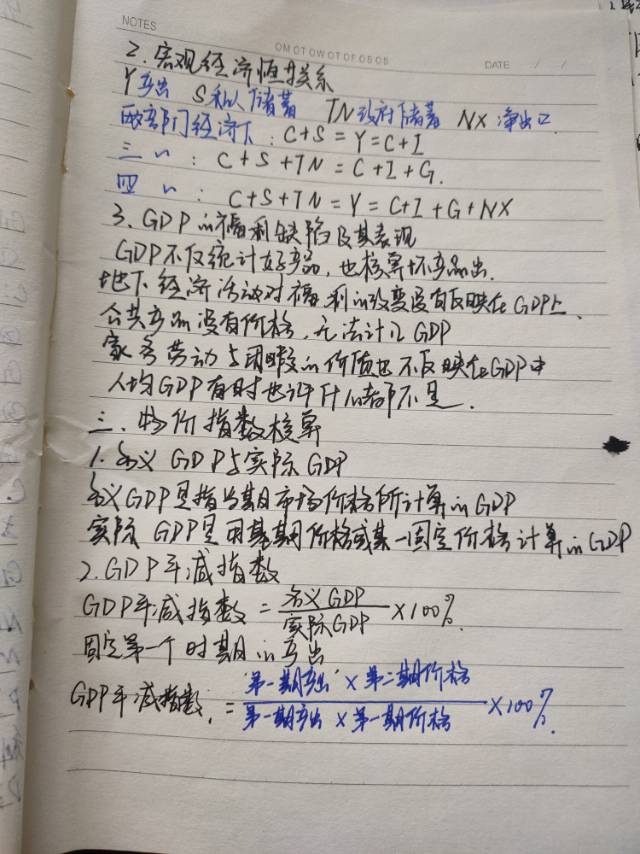 NOTES
OMOTOWOTOFOSOS
DATE / /
2. 宏观经济恒等关系
Y产出 S私人储蓄 TN政府储蓄 NX净出口
两部门经济下: C+S=Y=C+I
三 〃 : C+S+TN=C+I+G.
四 〃 : C+S+TN=Y=C+I+G+NX
3. GDP的福利缺陷及其表现
GDP不仅统计好产品, 也核算坏产品出.
地下经济活动对福利的改变没有反映在GDP上.
公共产品没有价格, 无法计入GDP
家务劳动与闲暇的价值也不反映在GDP中
人均GDP有时也许什么都不是.
三. 物价指数核算
1. 名义GDP与实际GDP
名义GDP是指当期市场价格所计算的GDP
实际GDP是用基期价格或某一固定价格计算的GDP
2. GDP平减指数
GDP平减指数 = 名义GDP / 实际GDP ×100%.
固定第一个时期的产出
GDP平减指数. = 第一期产出 × 第二期价格 / 第一期产出 × 第一期价格 ×100%.